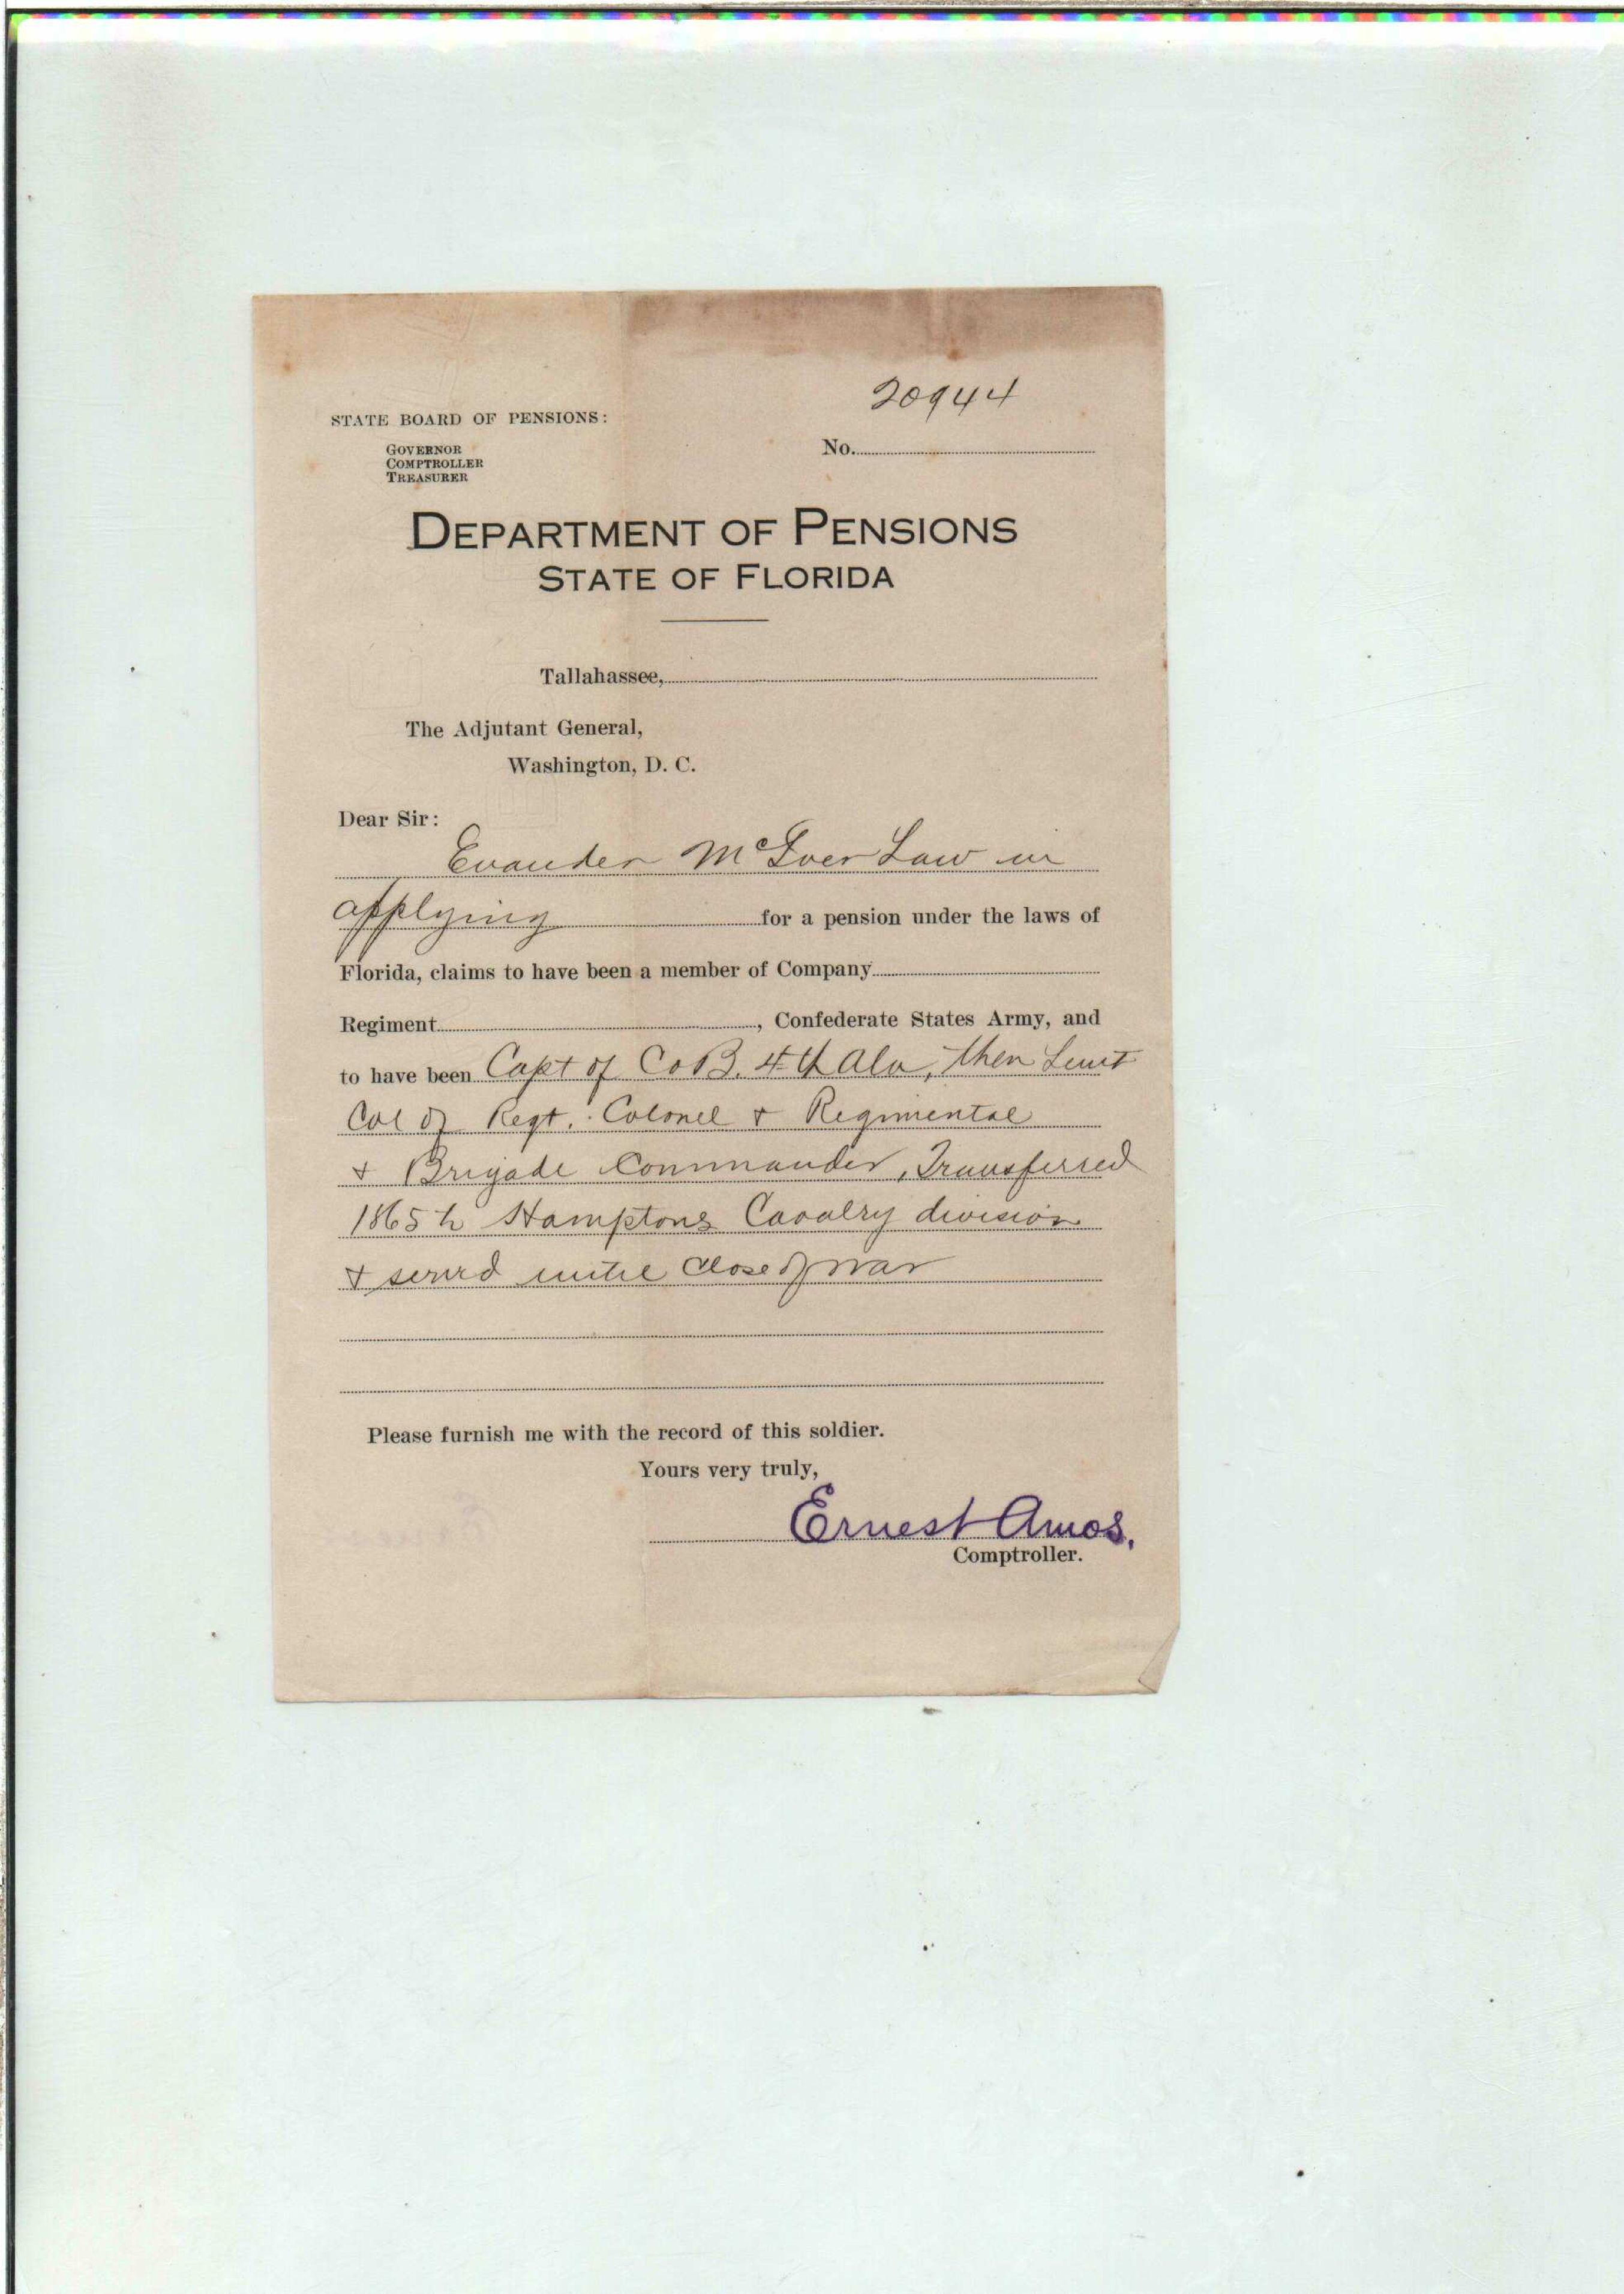 20944
STATE BOARD OF PENSIONS:
GOVERNOR
COMPTROLLER
TREASURER
No.
DEPARTMENT OF PENSIONS
STATE OF FLORIDA
Tallahassee,
The Adjutant General,
Washington, D. C.
Dear Sir:
Evander McIver Law in
applying for a pension under the laws of
Florida, claims to have been a member of Company
Regiment, Confederate States Army, and
to have been Capt of Co B. 4th Ala, then Leiut
Col of Regt. Colonel + Regimental
+ Brigade Commander, Transferred
1865 to Hamptons Cavalry division
+ served until close of war
Please furnish me with the record of this soldier.
Yours very truly,
Ernest Amos.
Comptroller.